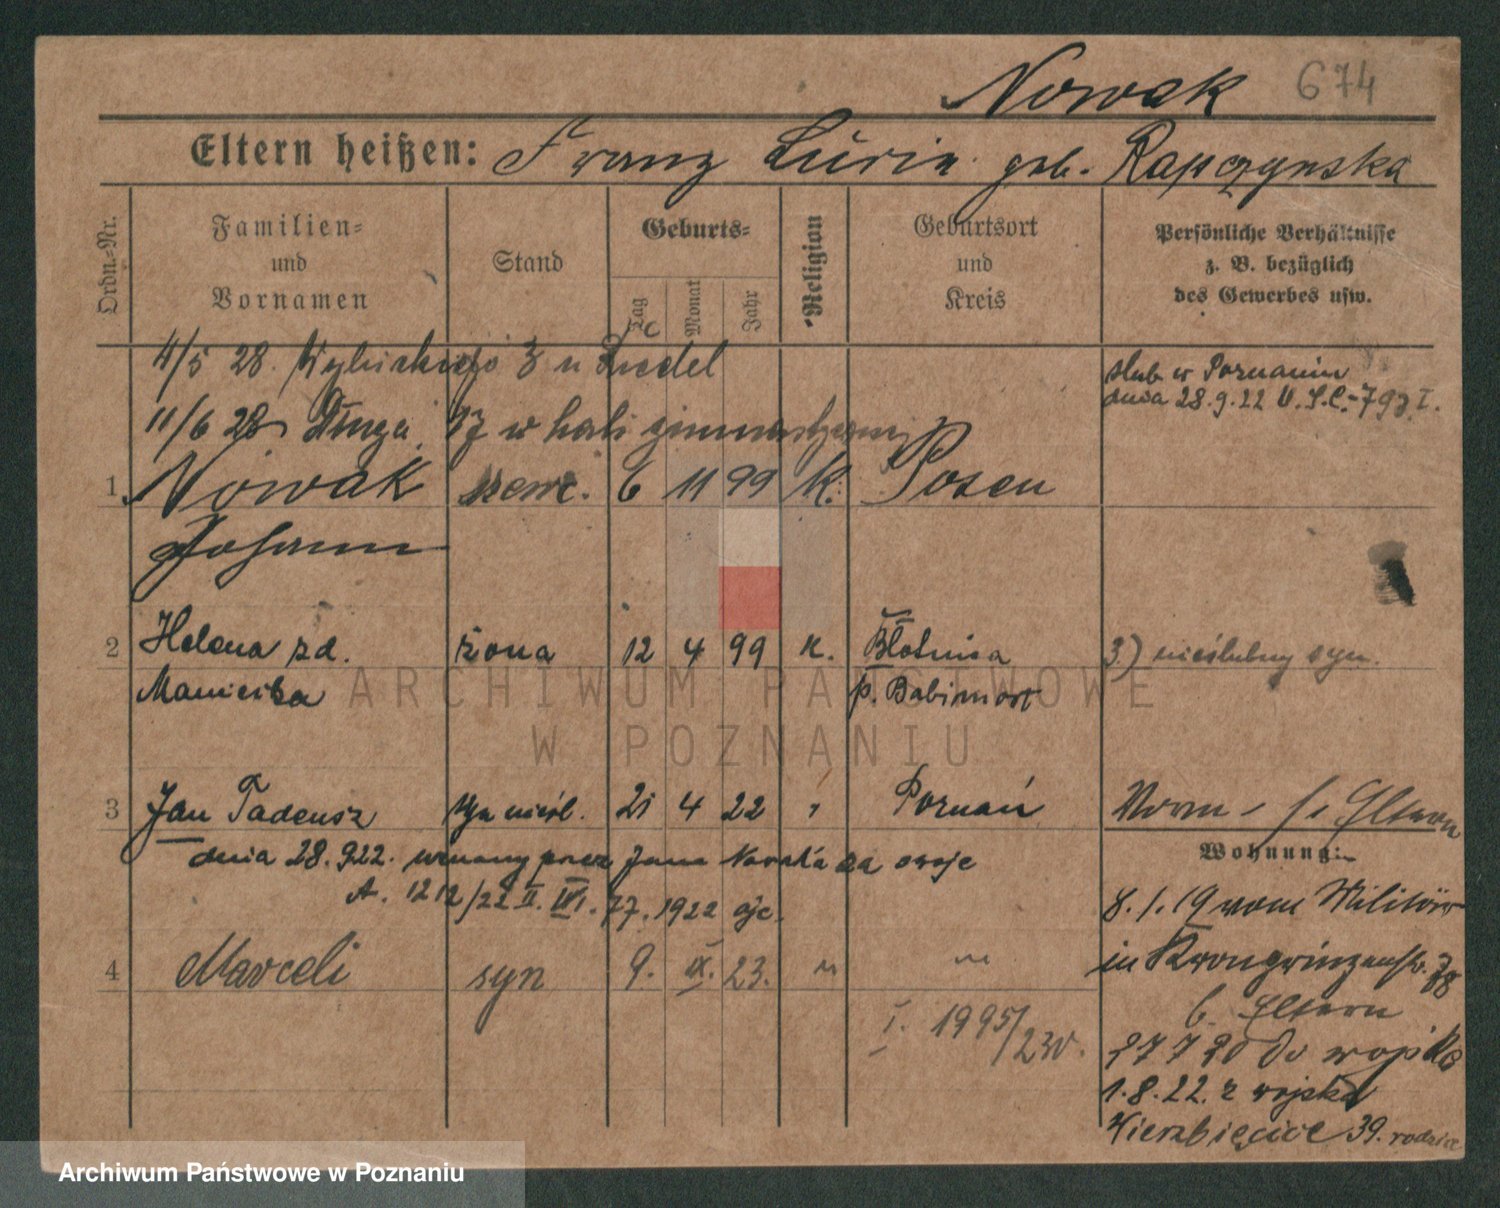 Nowak 674
Eltern heißen: Franz Lucia geb. Rapczynska
Ordn.-Nr.
Familien- und Vornamen
Stand
Geburts-
Tag
Monat
Jahr
Religion
Geburtsort und Kreis
Persönliche Verhältnisse z. B. bezüglich des Gewerbes usw.
4/5 28. Wybickiego 3 u Riedel
11/6 28 Długa w hali
ślub w Poznaniu
dnia 28.9.22 U.S.C. 793 I.
1 Nowak szewc. 6 11 99 K. Posen
Johann
2 Helena zd. żona 12 4 99 K. Błotnica
p. Babimost
3) nieślubny syn.
ARCHIWUM PAŃSTWOWE
W POZNANIU
3 Jan Tadeusz syn nieśl. 21 4 22 " Poznań
Norm. s. Eltern
dnia 28.9.22. uznany przez Jana Nowaka za swoje
A. 1212/22 II. 1922
Wohnung:
8.1.19 vom Militär
in Kronprinzenstr. 78
b. Eltern
4 Marceli syn 9. IX. 23. " "
I. 1995/230.
20 do wojska
1.8.22. z wojska
Wierzbięcice 39. rodzice
Archiwum Państwowe w Poznaniu